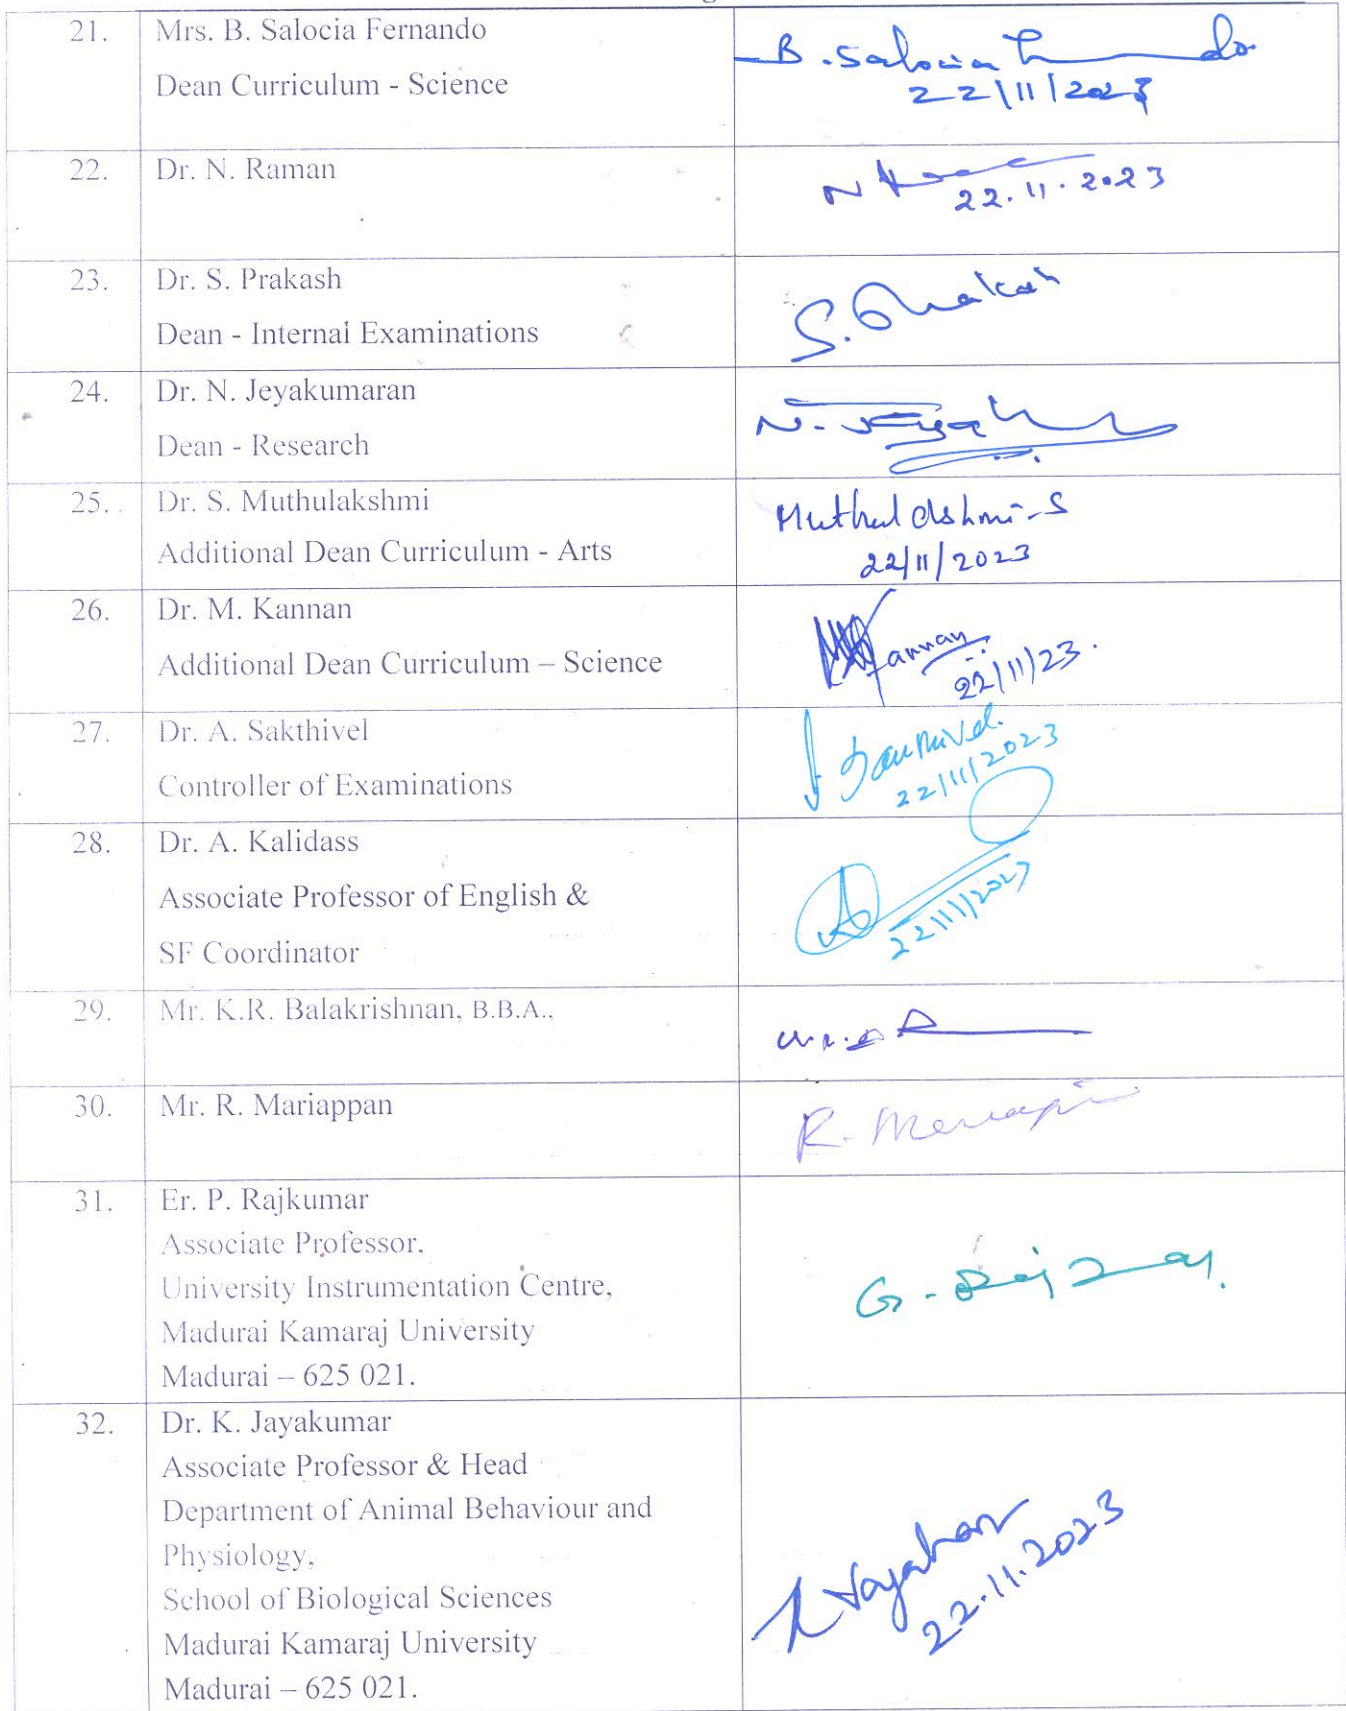 21.
Mrs. B. Salocia Fernando
Dean Curriculum - Science
B. Salocia
22/11/2023
22.
Dr. N. Raman
N
22.11.2023
23.
Dr. S. Prakash
Dean - Internal Examinations
S. Prakash
24.
Dr. N. Jeyakumaran
Dean - Research
N.
25.
Dr. S. Muthulakshmi
Additional Dean Curriculum - Arts
Muthulakshmi-S
22/11/2023
26.
Dr. M. Kannan
Additional Dean Curriculum – Science
Kannan
22/11/23.
27.
Dr. A. Sakthivel
Controller of Examinations
A. Sakthivel
22/11/2023
28.
Dr. A. Kalidass
Associate Professor of English &
SF Coordinator
22/11/2023
29.
Mr. K.R. Balakrishnan, B.B.A.,
30.
Mr. R. Mariappan
R.
31.
Er. P. Rajkumar
Associate Professor.
University Instrumentation Centre,
Madurai Kamaraj University
Madurai – 625 021.
G.
32.
Dr. K. Jayakumar
Associate Professor & Head
Department of Animal Behaviour and
Physiology,
School of Biological Sciences
Madurai Kamaraj University
Madurai – 625 021.
22.11.2023